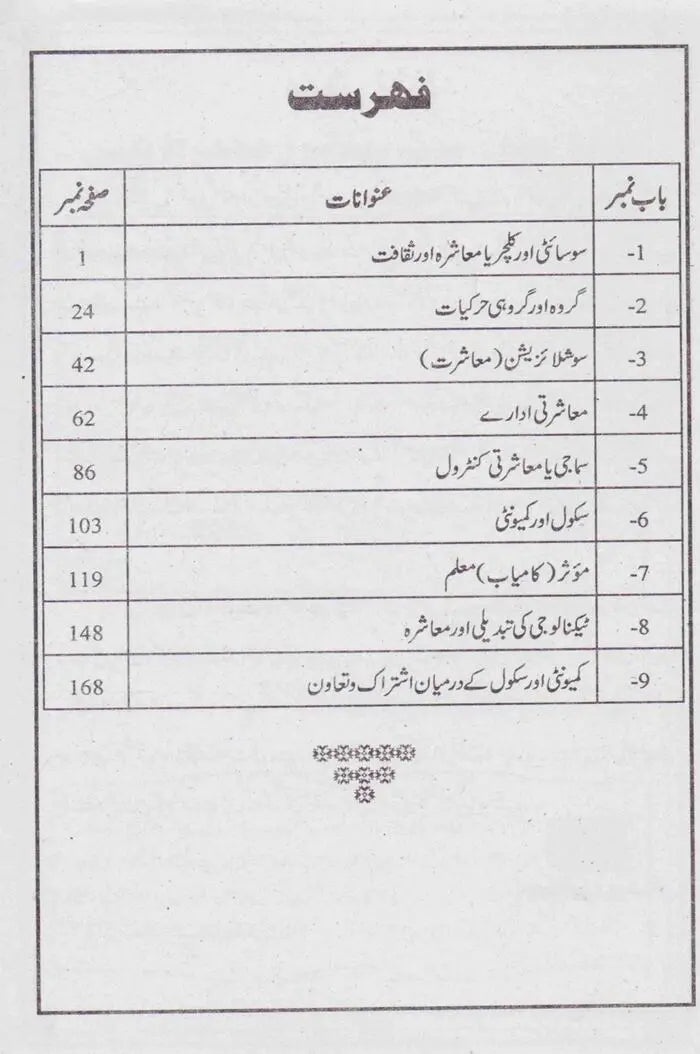 فہرست
باب نمبر عنوانات صفحہ نمبر
-1 سوسائٹی اور کلچر یا معاشرہ اور ثقافت 1
-2 گروہ اور گروہی حرکیات 24
-3 سوشلائزیشن (معاشرت) 42
-4 معاشرتی ادارے 62
-5 سماجی یا معاشرتی کنٹرول 86
-6 سکول اور کمیونٹی 103
-7 مؤثر (کامیاب) معلم 119
-8 ٹیکنالوجی کی تبدیلی اور معاشرہ 148
-9 کمیونٹی اور سکول کے درمیان اشتراک و تعاون 168